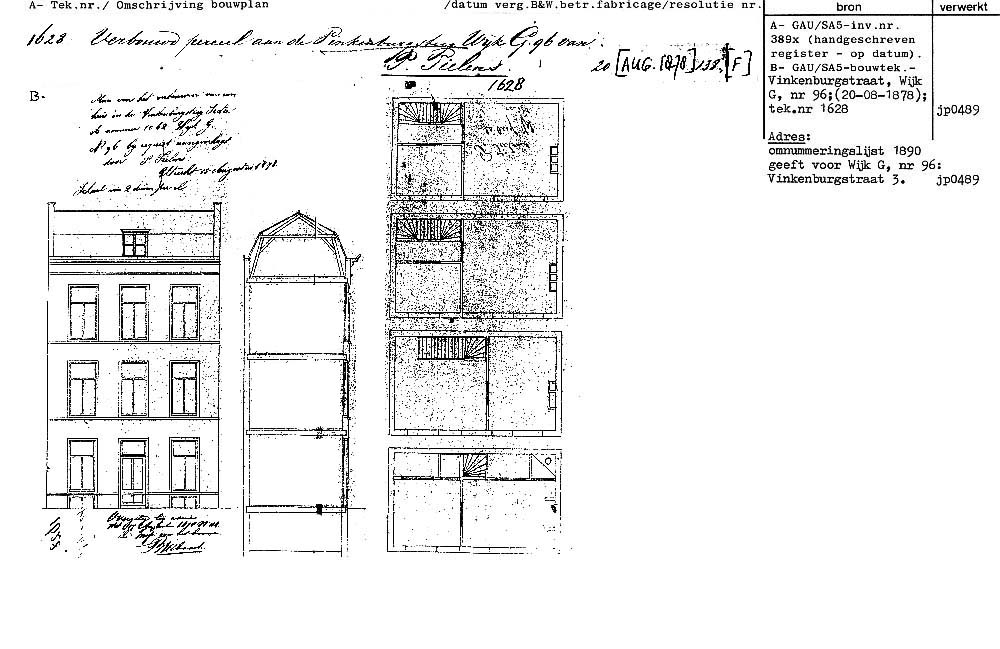 A- Tek.nr./ Omschrijving bouwplan /datum verg.B&W.betr.fabricage/resolutie nr.
bron
verwerkt
1628 Verbouwd perceel aan de Vinkenburgstraat Wijk G. 96 van
P. Tielens
20 [AUG. 1878] 138, [F]
1628
A- GAU/SA5-inv.nr.
389x (handgeschreven
register - op datum).
B- GAU/SA5-bouwtek.-
Vinkenburgstraat, Wijk
G, nr 96;(20-08-1878);
tek.nr 1628 jp0489
Adres:
omnummeringslijst 1890
geeft voor Wijk G, nr 96:
Vinkenburgstraat 3. jp0489
B-
Plan voor het verbouwen van een
huis in de
Wijk G
N° 96 bij request aangevraagd
door P. Tielens
Utrecht 15 Augustus 1878
Schaal van 2 duim per el